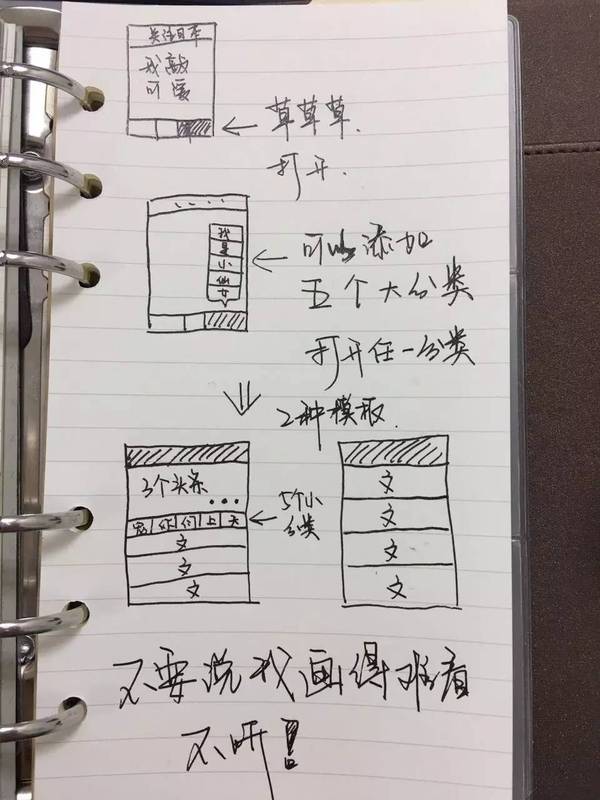 我敲
可爱
草草草
打开.
我
是
小
仙
女
可以添加
五个大分类
打开任一分类
2种模板.
3个头条
...
你 们 上 天
5个小
分类
文
文
文
文
文
文
文
不要说我画得难看
不听!